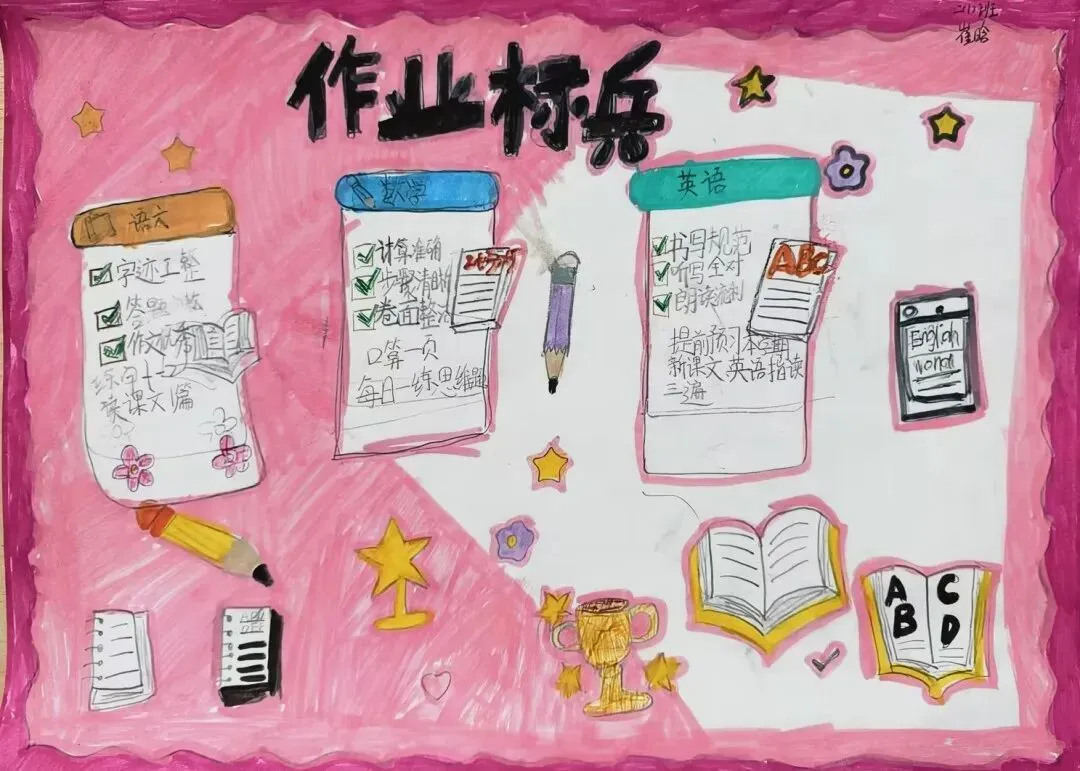 崔晗
作业标兵
语文
字迹工整
答题
作文优秀
练字
读课文1篇
数学
计算准确
步骤清晰
卷面整洁
口算一页
每日一练思维题
英语
书写规范
听写全对
朗读流利
ABC
提前预习
新课文英语指读
三遍
English
world
A B
C D